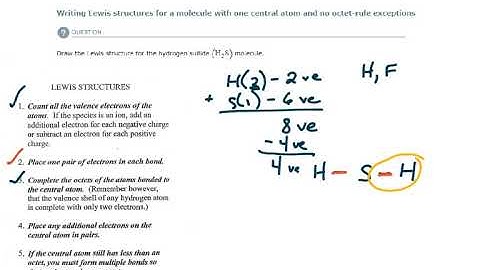 Writing Lewis structures for a molecule with one central atom and no octet-rule exceptions
? QUESTION
Draw the Lewis structure for the hydrogen sulfide (H₂S) molecule.
LEWIS STRUCTURES
1. Count all the valence electrons of the
atoms. If the species is an ion, add an
additional electron for each negative charge
or subtract an electron for each positive
charge.
2. Place one pair of electrons in each bond.
3. Complete the octets of the atoms bonded to
the central atom. (Remember however,
that the valence shell of any hydrogen atom
is complete with only two electrons.)
4. Place any additional electrons on the
central atom in pairs.
5. If the central atom still has less than an
octet, you must form multiple bonds so
H(2) - 2 ve
+ S(1) - 6 ve
8 ve
- 4 ve
4 ve
H, F
H - S - H